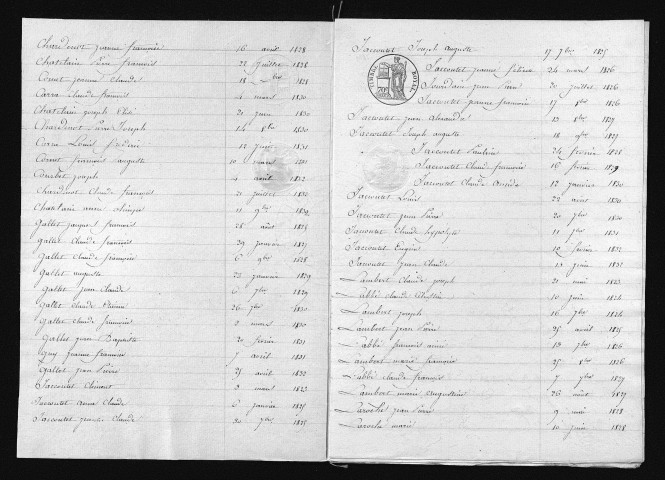 Chardenot jeanne françoise 16 avril 1828
Chatelain Pierre françois 22 juillet 1828
Cornet jeanne Claude 18 Xbre 1828
Carra Claude françois 4 mars 1830
Chatelain joseph 21 juin 1830
Chardenot Pierre Joseph 14 8bre 1830
Corne Louis frédéric 12 juin 1831
Cornet françois auguste 10 mars 1832
joseph 4 août 1832
Chardenot Claude françois 21 juillet 1832
Chatelain anne 11 9bre 1832
Gallet jacques françois 28 août 1825
Gallet Claude françois 29 janvier 1827
Gallet Claude françois 6 9bre 1828
Gallet auguste 22 janvier 1829
Gallet jean Claude 6 7bre 1829
Gallet Claude Etienne 26 7bre 1830
Gallet Claude françois 2 mars 1830
Gallet jean Baptiste 20 février 1831
Guy jeanne françoise 7 avril 1831
Gallet jean Pierre 21 avril 1832
Jaccoutet Clément 3 mars 1823
Jaccoutet anne Claude 6 janvier 1825
Jaccoutet jeanne Claude 20 7bre 1825
Jaccoutet Joseph Auguste 17 7bre 1825
TIMBRE ROYAL
Jaccoutet jeanne 24 mars 1826
Jourdain jean Pierre 30 juillet 1826
Jaccoutet jeanne françoise 17 8bre 1826
Jaccoutet jean alexandre 13 8bre 1827
Jaccoutet Joseph auguste 18 9bre 1827
Jaccoutet Pauline 24 février 1828
Jaccoutet Claude françoise 16 février 1829
Jaccoutet Claude 12 janvier 1830
Jaccoutet Louis 22 avril 1830
Jaccoutet jean Pierre 20 7bre 1830
Jaccoutet Claude hypolyte 11 7bre 1831
Jaccoutet Eugène 10 février 1832
Jaccoutet jean Claude 13 juin 1832
Lambert Claude joseph 21 mai 1823
Labbé Claude 10 juin 1824
Lambert joseph 16 7bre 1824
Lambert jean Pierre 25 avril 1825
Labbé françois aimé 13 7bre 1825
Lambert marie françoise 25 8bre 1826
Labbé Claude françois 7 7bre 1827
Lambert marie augustine 26 août 1827
Laroche jean Pierre 9 mai 1828
Laroche marie 10 juin 1828